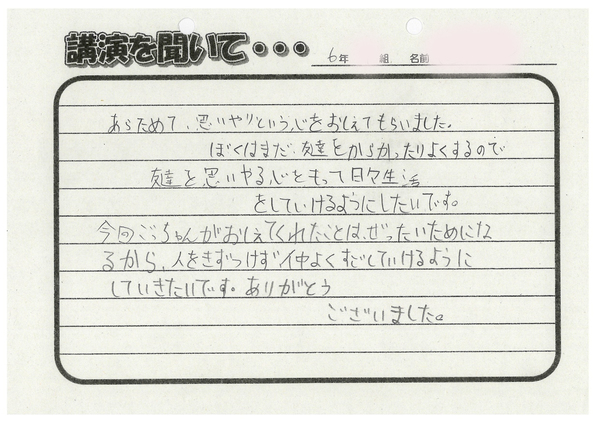 講演を聞いて・・・
6年 組 名前
あらためて、思いやりという心をおしえてもらいました。
ぼくはまだ、友達をからかったりよくするので
友達を思いやる心をもって日々生活
をしていけるようにしたいです。
今回ごっちゃんがおしえてくれたことは、ぜったいためにな
るから、人をきずつけず仲よくすごしていけるように
していきたいです。ありがとう
ございました。